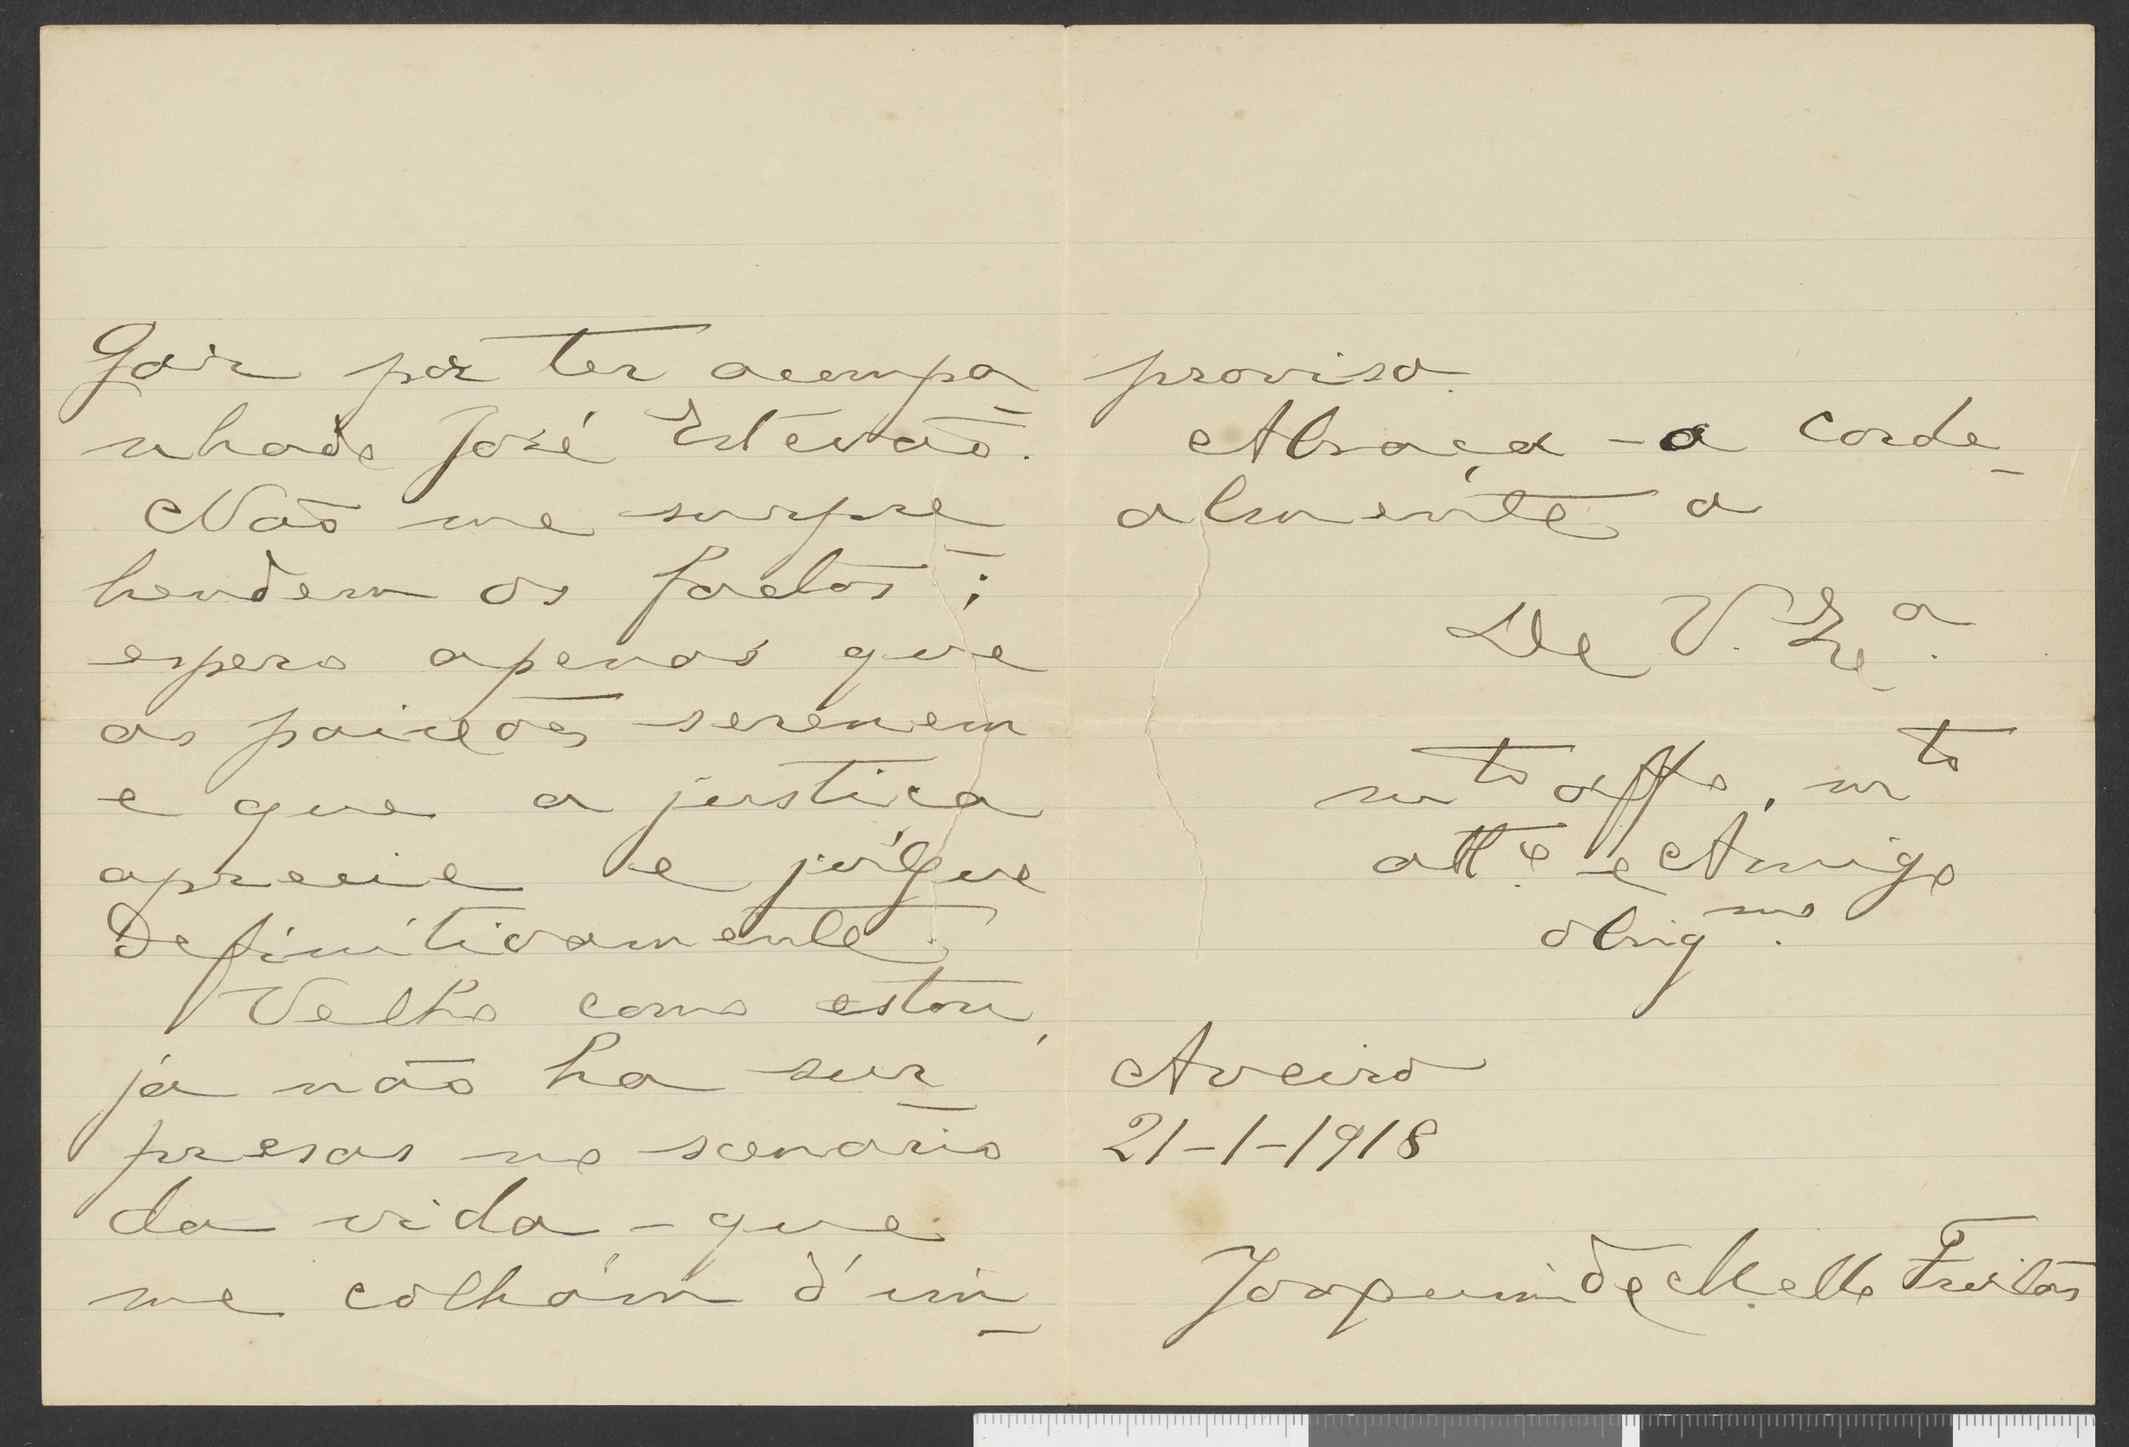 gar por ter acompa-
nhado José Estevão.
Não me surpre-
hendem os factos;
espero apenas que
as paixões serenem
e que a justiça
aprecie e julgue
definitivamente.
Velho como estou,
já não ha sur-
presas no scenario
da vida - que
me colham d'im-
proviso.
Abraça-o corde-
almente o
De V. Exª.
mto affo, mto
atto e Amigo
obrigmo.
Aveiro
21-1-1918
Joaquim de Mello Freitas